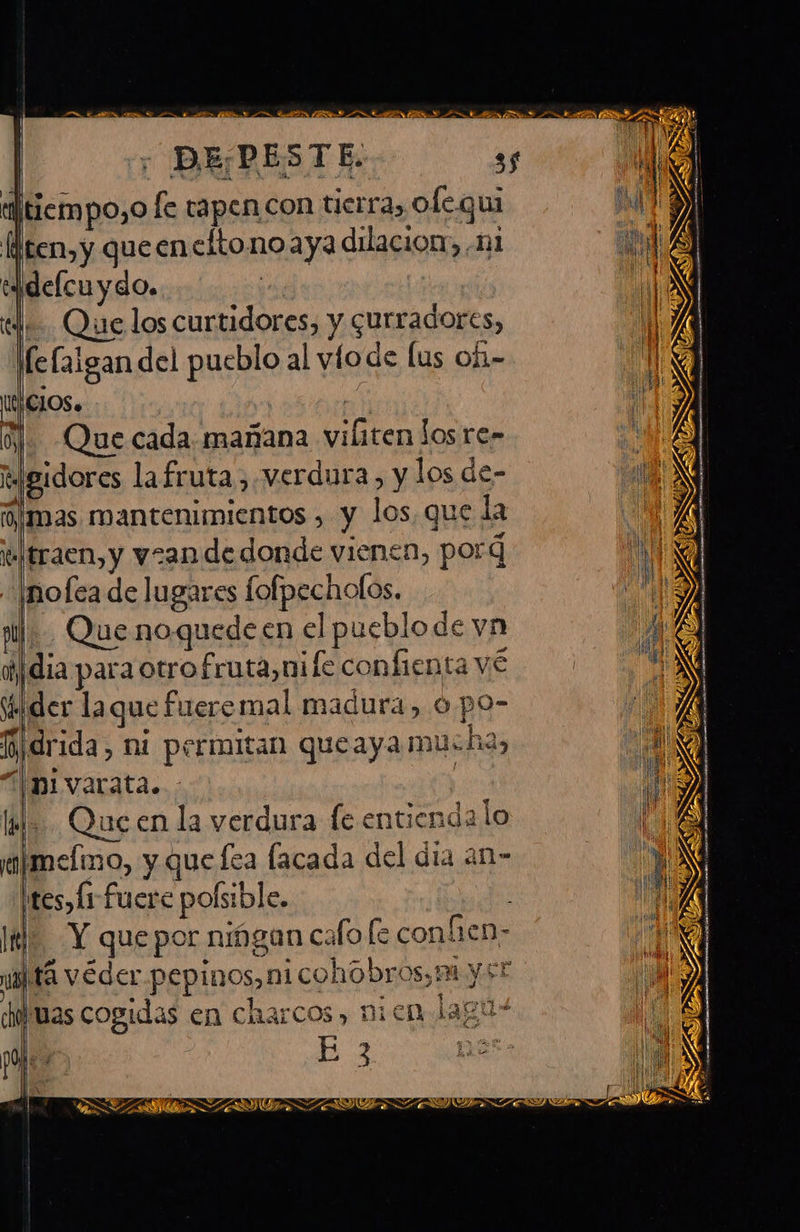 DE PESTE. 35
tiempo,o ſe tapen con tierra, oſequi
ten,y que en eſto no aya dilacion, ni
deſcuydo.
Que los curtidores, y çurradores,
ſe ſalgan del pueblo al vſo de ſus ofi-
cios.
Que cada mañana viſiten los re-
gidores la fruta, verdura, y los de-
mas mantenimientos, y los que la
traen,y vean de donde vienen, porq̃
no ſea de lugares ſoſpechoſos.
Que no quede en el pueblo de vn
dia para otro fruta,ni ſe conſienta vẽ
der la que fuere mal madura, o po-
drida, ni permitan que aya mucha,
ni varata.
Que en la verdura ſe entienda lo
meſmo, y que ſea ſacada del dia an-
tes,ſi fuere poſsible.
Y que por ningun caſo ſe conſien-
tã vẽder pepinos,ni cohobros,ni yer
uas cogidas en charcos, ni en lagu-
E 3 nas